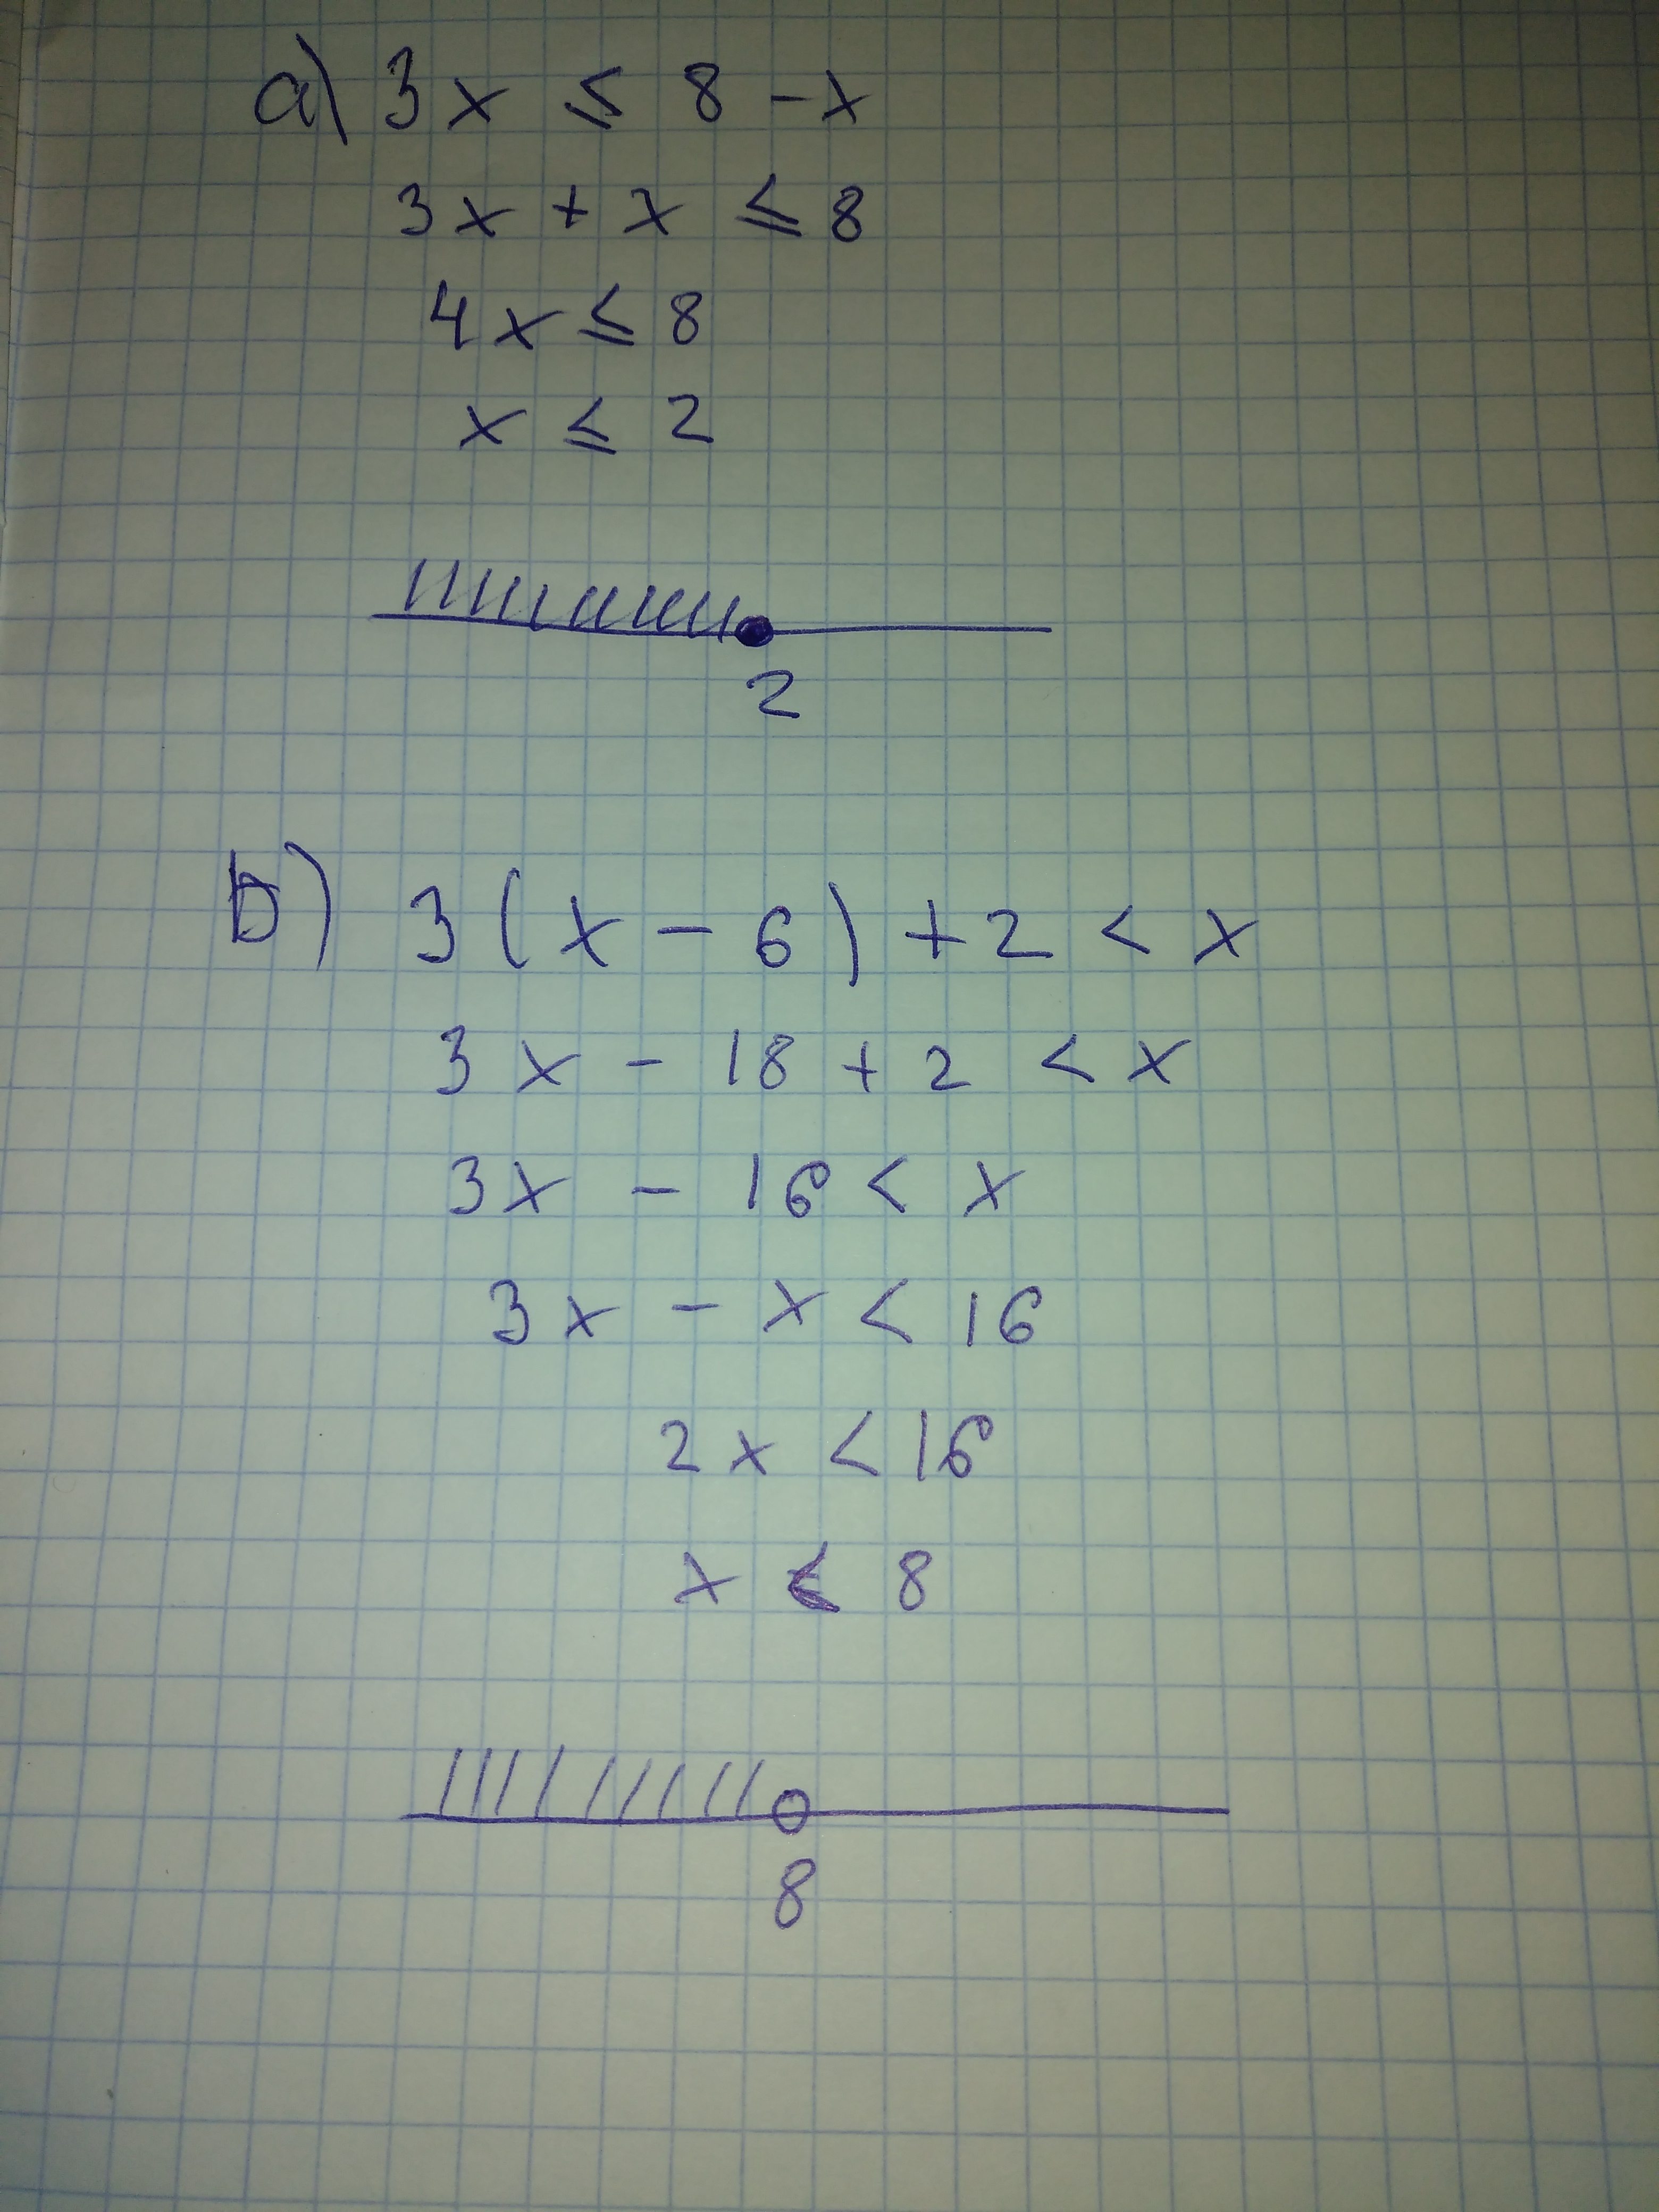 a) 3x ≤ 8 - x
3x + x ≤ 8
4x ≤ 8
x ≤ 2
2
b) 3(x - 6) + 2 < x
3x - 18 + 2 < x
3x - 16 < x
3x - x < 16
2x < 16
x < 8
8